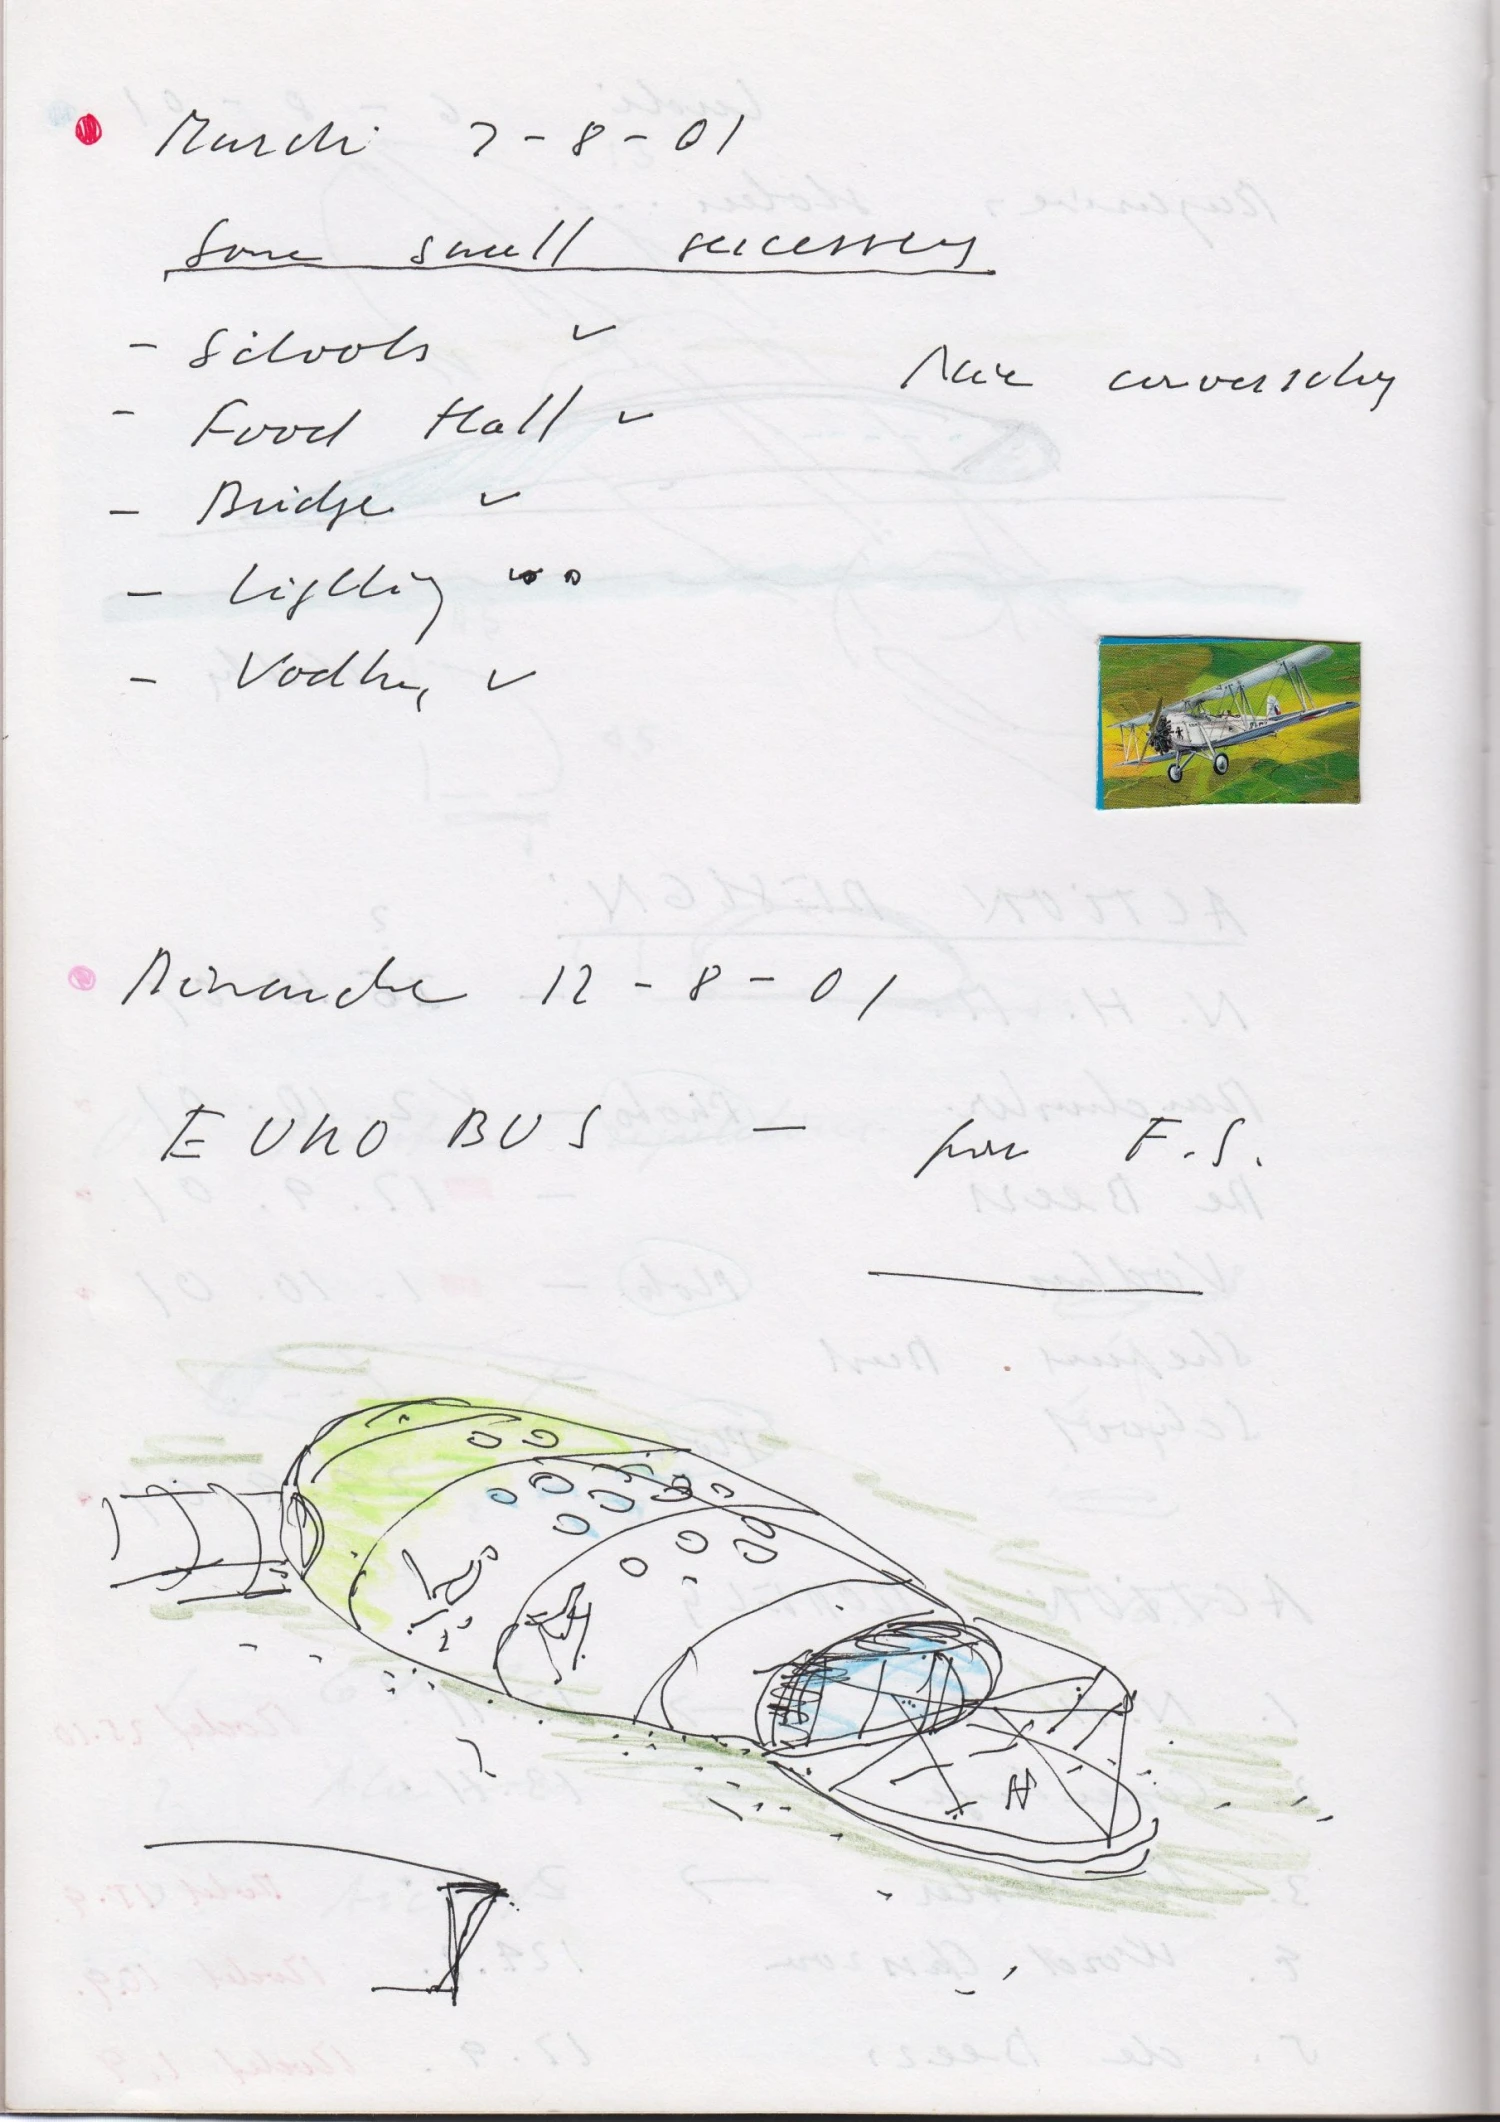 Mardi 7-8-01
Some small successes
- Schools ✓
- Food Hall ✓
- Bridge ✓
- Lighting
- Vodka ✓
Dimanche 12-8-01
EURO BUS — F.S.
H